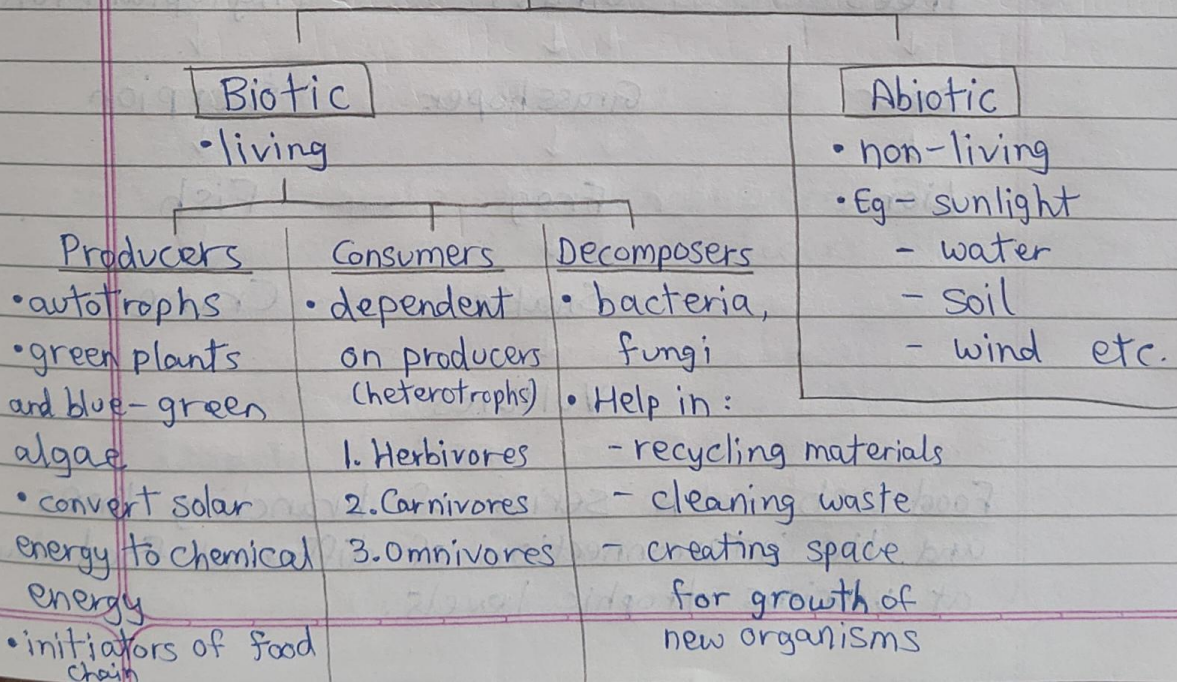 Biotic
• living
Producers
• autotrophs
• green plants
and blue-green
algae
• convert solar
energy to chemical
energy
• initiators of food
chain
Consumers
• dependent
on producers
(heterotrophs)
1. Herbivores
2. Carnivores
3. Omnivores
Decomposers
• bacteria,
fungi
• Help in:
- recycling materials
- cleaning waste
- creating space
for growth of
new organisms
Abiotic
• non-living
• Eg - sunlight
- water
- soil
- wind etc.